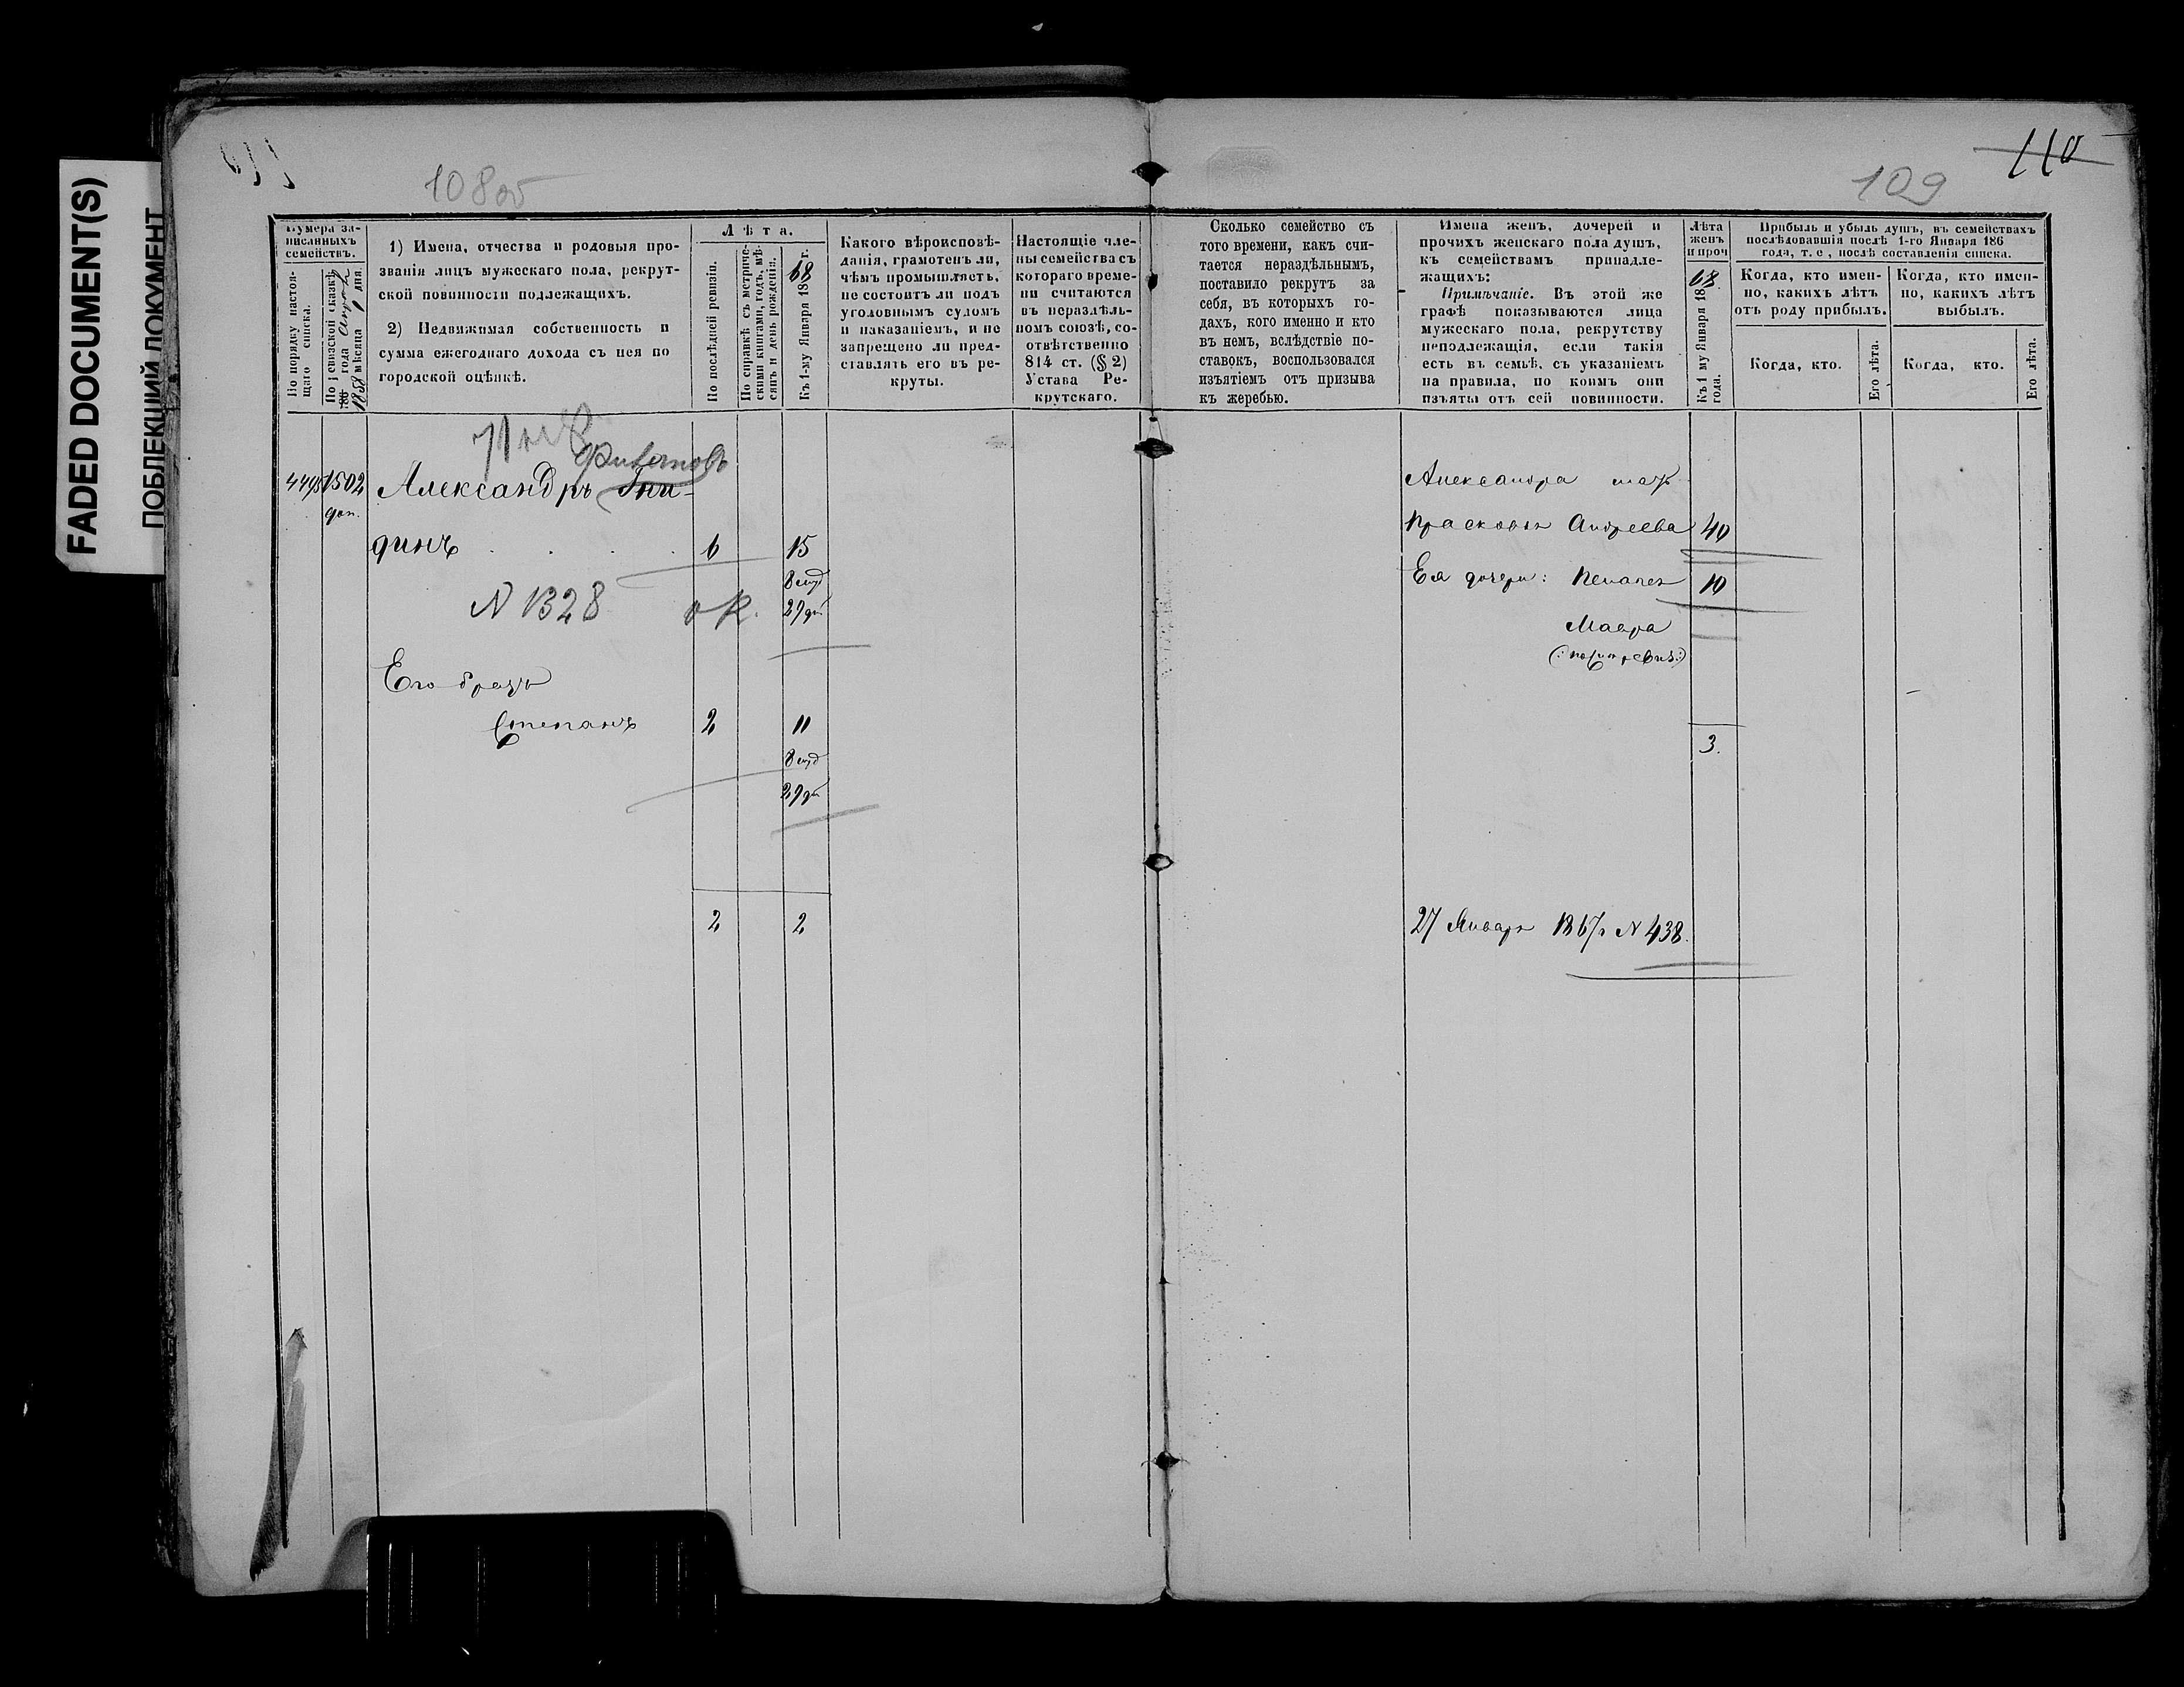 FADED DOCUMENT(S)
ПОБЛЕКШИЙ ДОКУМЕНТ
108об
109
110
Нумера за-
писанныхъ
семействъ.
По порядку настоя-
щаго списка.
По ревизской сказкѣ
1858 года
мѣсяца дня.
1) Имена, отчества и родовыя про-
званія лицъ мужескаго пола, рекрут-
ской повинности подлежащихъ.
2) Недвижимая собственность и
сумма ежегоднаго дохода съ нея по
городской оцѣнкѣ.
Лѣта.
По послѣдней ревизіи.
По справкѣ съ метриче-
скими книгами, годъ, мѣ-
сяцъ и день рожденія.
Къ 1-му Января 1868 г.
Какого вѣроисповѣ-
данія, грамотенъ ли,
чѣмъ промышляетъ,
не состоитъ ли подъ
уголовнымъ судомъ
и наказаніемъ, и не
запрещено ли пред-
ставлять его въ ре-
круты.
Настоящіе чле-
ны семейства съ
котораго време-
ни считаются
въ нераздѣль-
номъ союзѣ, со-
отвѣтственно
814 ст. (§ 2)
Устава Ре-
крутскаго.
Сколько семейство съ
того времени, какъ счи-
тается нераздѣльнымъ,
поставило рекрутъ за
себя, въ которыхъ го-
дахъ, кого именно и кто
въ немъ, вслѣдствіе по-
ставокъ, воспользовался
изъятіемъ отъ призыва
къ жеребью.
Имена женъ, дочерей и
прочихъ женскаго пола душъ,
къ семействамъ принадле-
жащихъ:
Примѣчаніе. Въ этой же
графѣ показываются лица
мужескаго пола, рекрутству
неподлежащія, если такія
есть въ семьѣ, съ указаніемъ
на правила, по коимъ они
изъяты отъ сей повинности.
Лѣта
женъ
и проч
Къ 1 му Января 1868
года.
Прибыль и убыль душъ, въ семействахъ
послѣдовавшія послѣ 1-го Января 186
года, т. е., послѣ составленія списка.
Когда, кто имен-
но, какихъ лѣтъ
отъ роду прибылъ.
Когда, кто имен-
но, какихъ лѣтъ
выбылъ.
Когда, кто.
Его лѣта.
Когда, кто.
Его лѣта.
4495 1502 Александръ
доп.
динъ . . . . 6 15
8 мѣс
N 1328 29 дн
Его братъ
Степанъ 2 11
8 мѣс
29 дн
2 2
Александра мать
Прасковья Андреева 40
Ея дочери: Пелагея 10
Мавра
3.
27 Января 1867 г N 438.